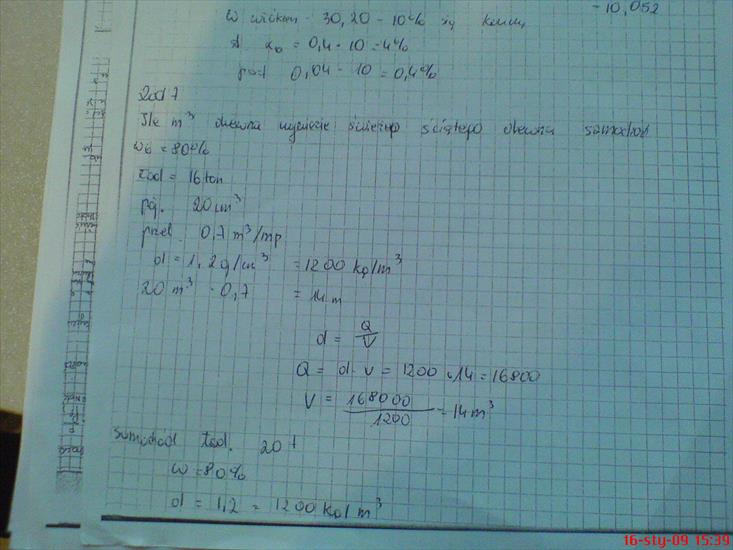 - 10,052
30,20 - 10% się
= 0,4 · 10 = 4%
pod 0,04 - 10 = 0,4%
Zad 7
Ile m³ drewna wywiezie świeżego ściętego drewna samochód
= 80%
ład = 16 ton
poj. 20 m³
0,7 m³/mp
d = 1,2 g/cm³ = 1200 kg/m³
20 m³ · 0,7 = 14 m
d = Q/V
Q = d · v = 1200 · 14 = 16800
V = 168000/1200 = 14 m³
samochód ład. 20 t
w = 80%
d = 1,2 = 1200 kg/m³
16-sty-09 15:39